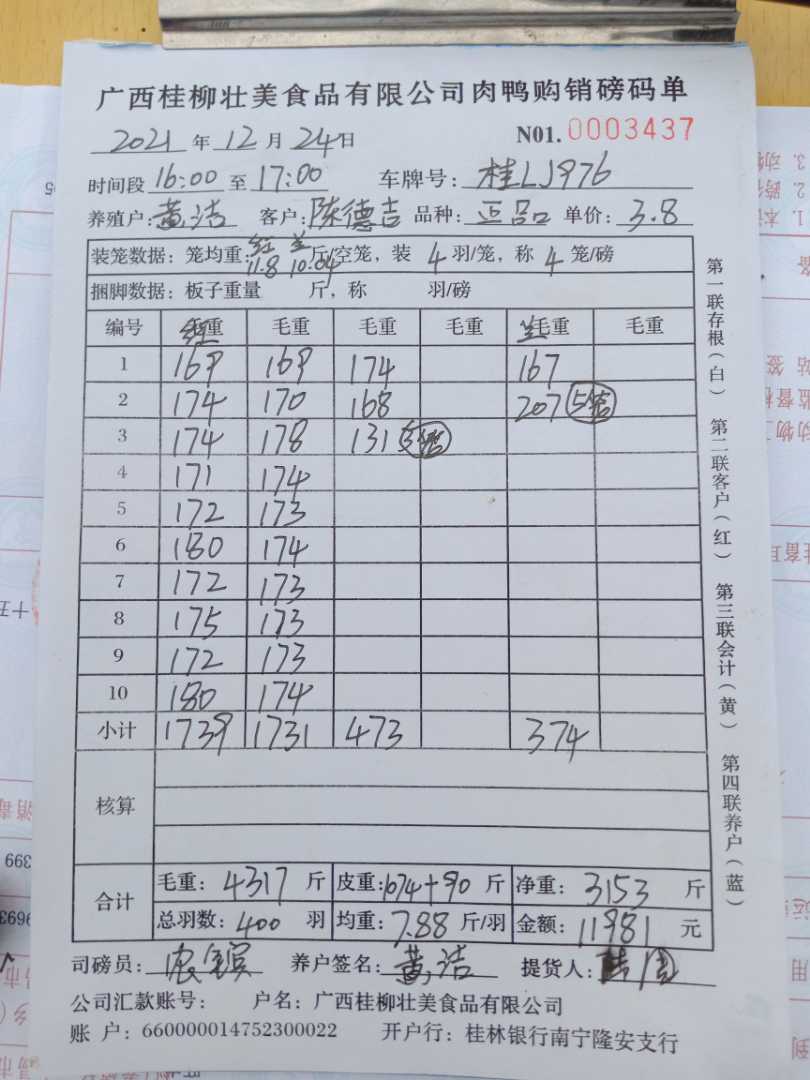 广西桂柳壮美食品有限公司肉鸭购销磅码单
2021 年 12 月 24 日 N01. 0003437
时间段 16:00 至 17:00 车牌号: 桂LJ976
养殖户: 黄洁 客户: 陈德吉 品种: 正品 单价: 3.8
红 兰
装笼数据: 笼均重: 11.8 10.04 斤/空笼, 装 4 羽/笼, 称 4 笼/磅
捆脚数据: 板子重量 斤, 称 羽/磅
编号 红毛重 毛重 毛重 毛重 兰毛重 毛重
1 169 169 174 167
2 174 170 168 207 5笼
3 174 178 131 3笼
4 171 174
5 172 173
6 180 174
7 172 173
8 175 173
9 172 173
10 180 174
小计 1739 1731 473 374
核算
合计 毛重: 4317 斤 皮重: 1074+90 斤 净重: 3153 斤
总羽数: 400 羽 均重: 7.88 斤/羽 金额: 11981 元
司磅员: 养户签名: 黄洁 提货人:
公司汇款账号: 户名: 广西桂柳壮美食品有限公司
账 户: 660000014752300022 开户行: 桂林银行南宁隆安支行
第一联存根(白) 第二联客户(红) 第三联会计(黄) 第四联养户(蓝)